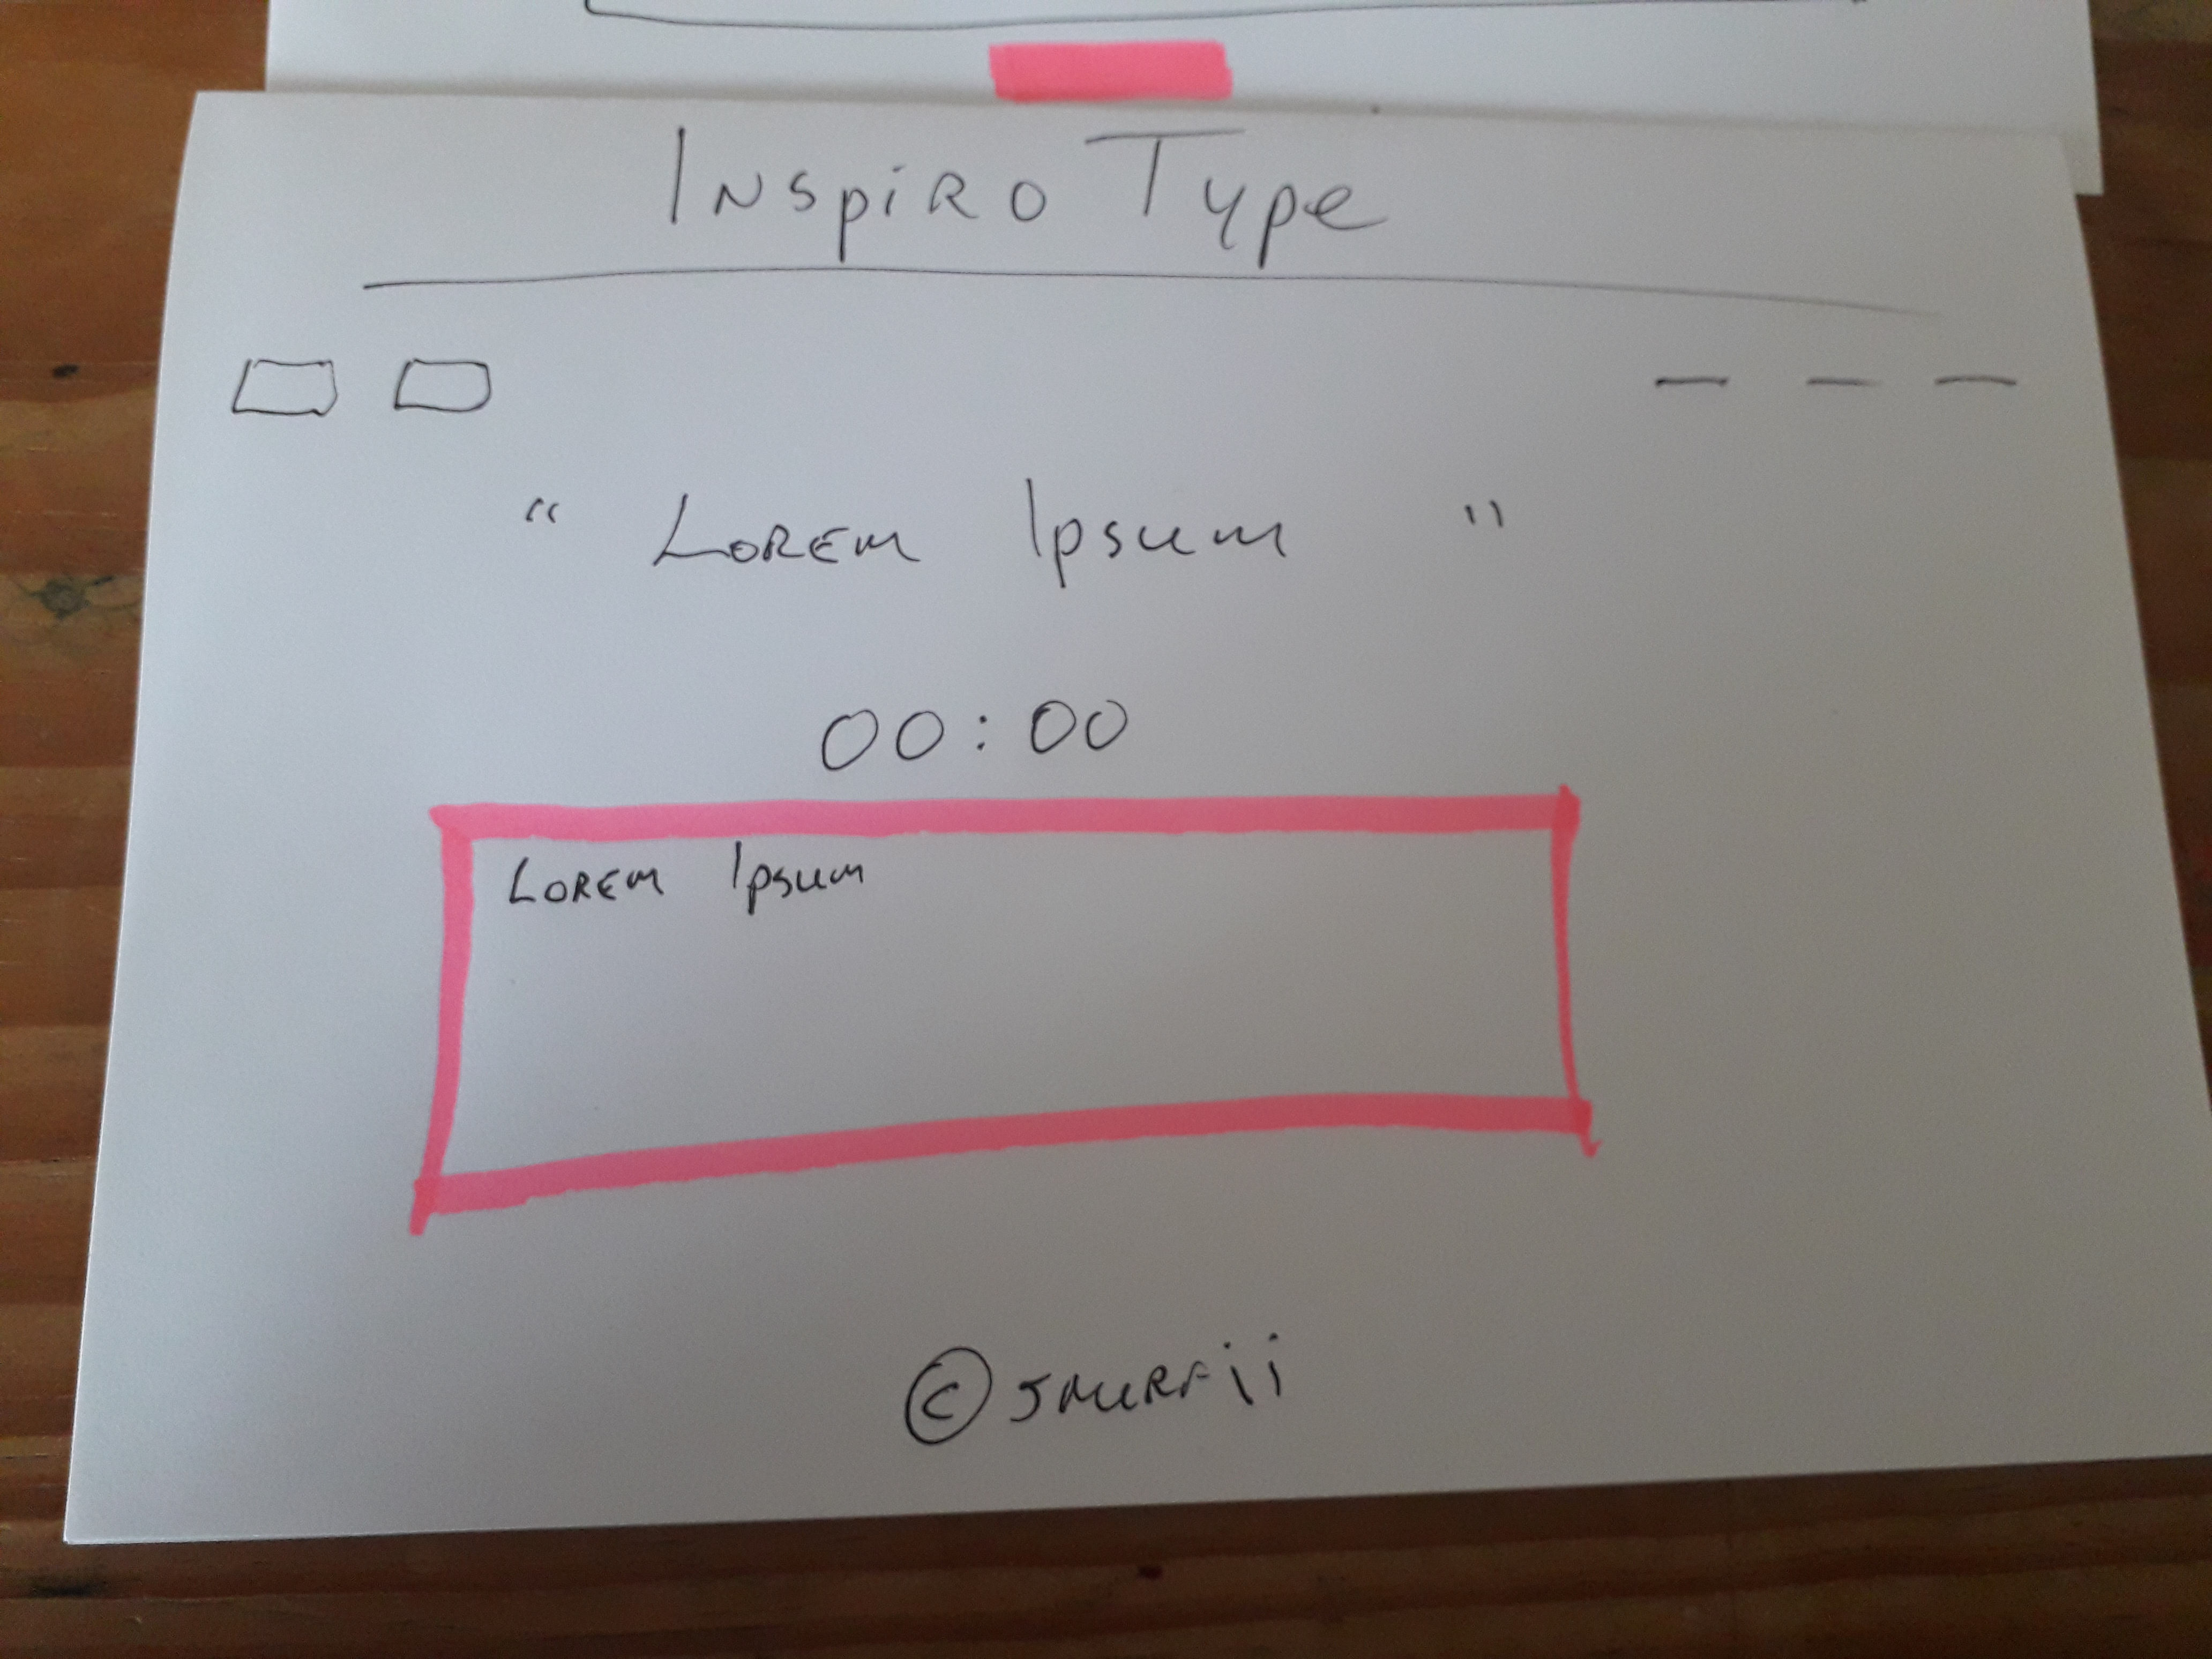 Inspiro Type
“ Lorem Ipsum "
00:00
Lorem Ipsum
© smurfii